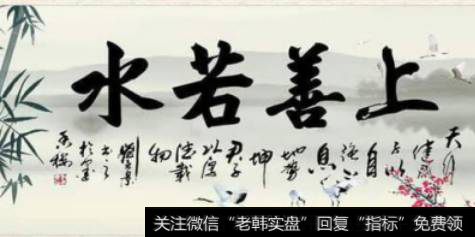 上善若水
天行
健君
子以
自
强不
息
地势
坤
君子
以厚
德载
物
关注微信“老韩实盘”回复“指标”免费领